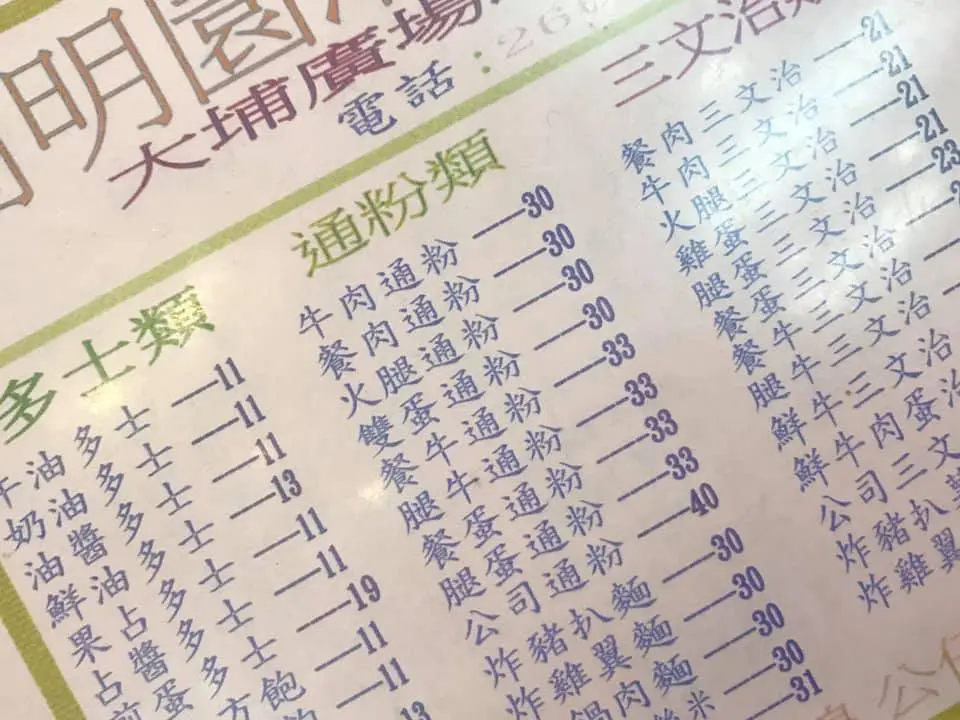 明園
大埔廣場
電話：26
多士類
牛油多士—11
奶油多士—11
油醬多士—11
鮮油多士—13
果占多士—11
占醬多士—11
煎蛋多士—19
方飽—11
—11
13
通粉類
牛肉通粉—30
餐肉通粉—30
火腿通粉—30
雙蛋通粉—30
餐牛通粉—33
腿牛通粉—33
餐蛋通粉—33
腿蛋通粉—33
公司通粉—40
炸豬扒麵—30
炸雞翼麵—30
肉麵—30
米—31
三文治類
餐肉三文治—21
牛肉三文治—21
火腿三文治—21
雞蛋三文治—21
腿蛋三文治—23
餐蛋三文治—2
餐牛三文治—
腿牛三文治—
鮮牛三文治
鮮牛肉蛋治
公司三文
炸豬扒
炸雞翼
公